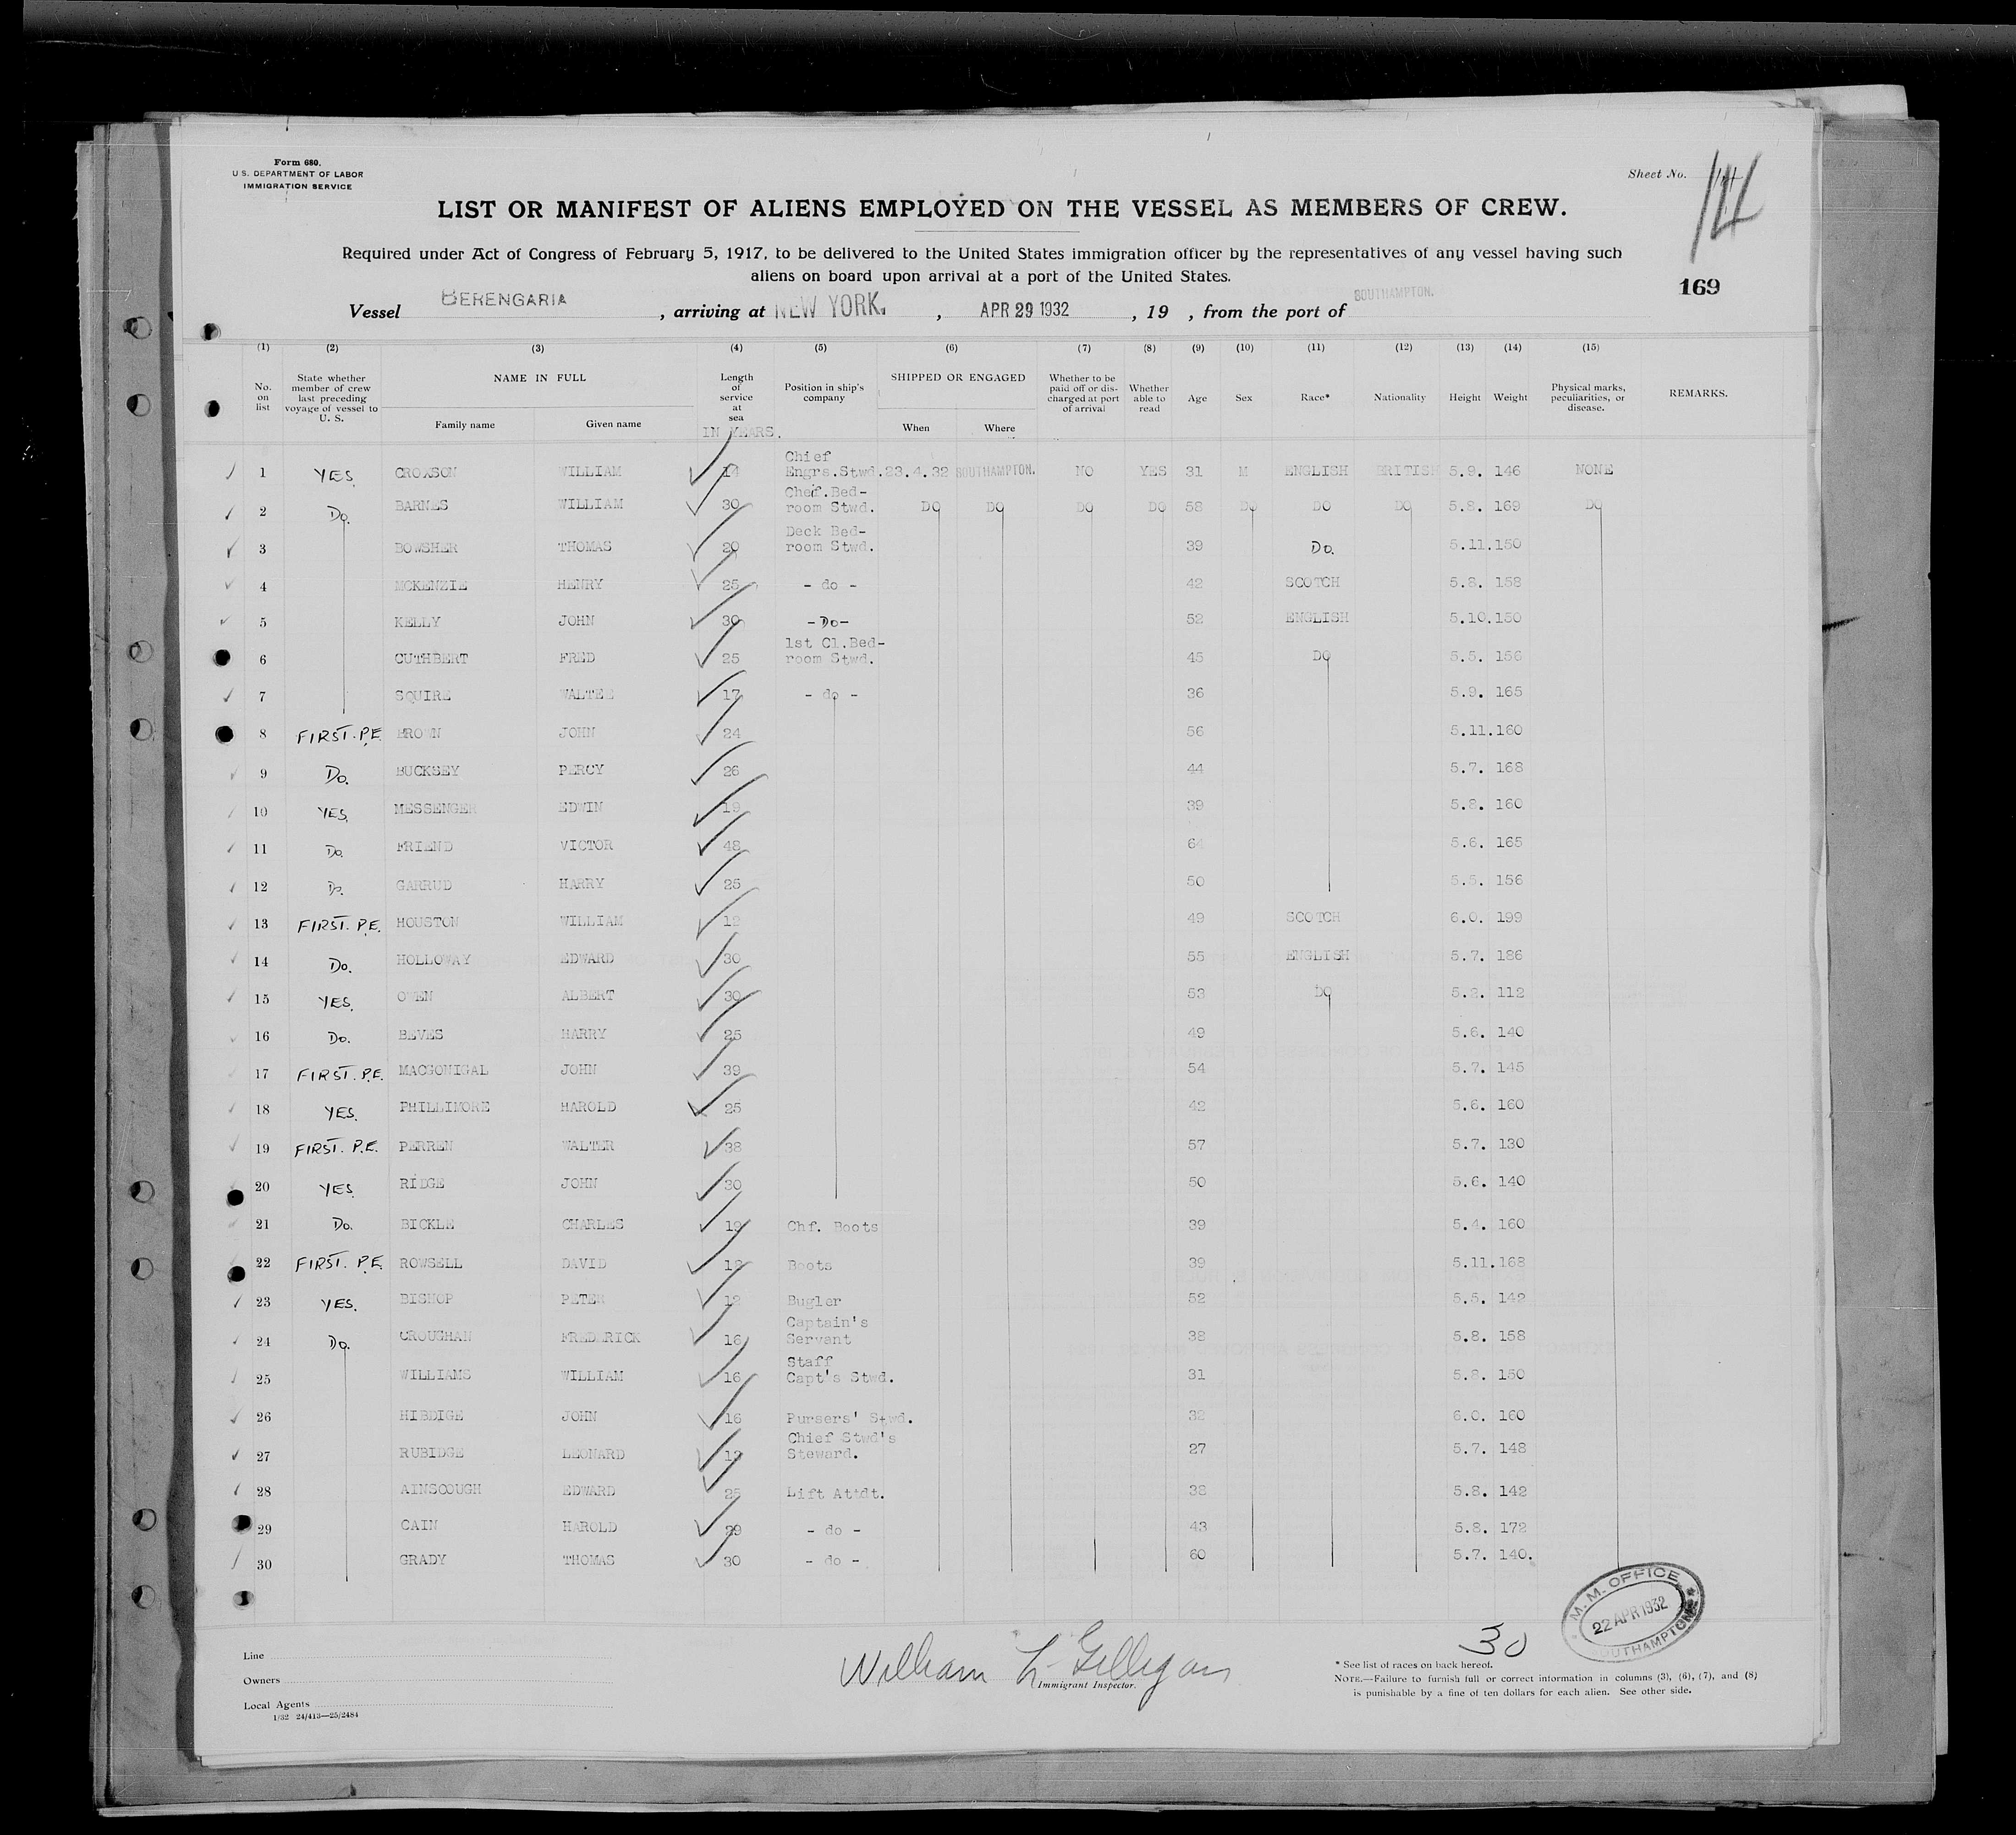 Form 680.
U.S. DEPARTMENT OF LABOR
IMMIGRATION SERVICE
Sheet No.
LIST OR MANIFEST OF ALIENS EMPLOYED ON THE VESSEL AS MEMBERS OF CREW.
Required under Act of Congress of February 5, 1917, to be delivered to the United States immigration officer by the representatives of any vessel having such
aliens on board upon arrival at a port of the United States.
169
Vessel BERENGARIA, arriving at NEW YORK., APR 29 1932, 19 , from the port of SOUTHAMPTON.
(1) (2) (3) (4) (5) (6) (7) (8) (9) (10) (11) (12) (13) (14) (15)
No. on list State whether member of crew last preceding voyage of vessel to U. S. NAME IN FULL Family name Given name Length of service at sea IN YEARS. Position in ship's company SHIPPED OR ENGAGED When Where Whether to be paid off or discharged at port of arrival Whether able to read Age Sex Race* Nationality Height Weight Physical marks, peculiarities, or disease. REMARKS.
1 YES. CROXSON WILLIAM 14 Chief Engrs.Stwd. 23.4.32 SOUTHAMPTON. NO YES 31 M ENGLISH BRITISH 5.9. 146 NONE
2 Do. BARNES WILLIAM 30 Chef.Bed-room Stwd. DO DO DO DO 58 DO DO DO 5.8. 169 DO
3 BOWSHER THOMAS 20 Deck Bed-room Stwd. 39 Do. 5.11. 150
4 MCKENZIE HENRY 25 - do - 42 SCOTCH 5.8. 158
5 KELLY JOHN 30 -Do- 52 ENGLISH 5.10. 150
6 CUTHBERT FRED 25 1st Cl.Bed-room Stwd. 45 DO 5.5. 156
7 SQUIRE WALTER 17 - do - 36 5.9. 165
8 FIRST. P.E. BROWN JOHN 24 56 5.11. 160
9 Do. BUCKSEY PERCY 26 44 5.7. 168
10 YES. MESSENGER EDWIN 19 39 5.8. 160
11 Do. FRIEND VICTOR 48 64 5.6. 165
12 Do. GARRUD HARRY 25 50 5.5. 156
13 FIRST. P.E. HOUSTON WILLIAM 12 49 SCOTCH 6.0. 199
14 Do. HOLLOWAY EDWARD 30 55 ENGLISH 5.7. 186
15 YES. OWEN ALBERT 30 53 DO 5.2. 112
16 Do. BEVES HARRY 25 49 5.6. 140
17 FIRST. P.E. MACGONIGAL JOHN 39 54 5.7. 145
18 YES. PHILLIMORE HAROLD 25 42 5.6. 160
19 FIRST. P.E. PERREN WALTER 38 57 5.7. 130
20 YES. RIDGE JOHN 30 50 5.6. 140
21 Do. BICKLE CHARLES 19 Chf. Boots 39 5.4. 160
22 FIRST. P.E. ROWSELL DAVID 12 Boots 39 5.11. 168
23 YES. BISHOP PETER 12 Bugler 52 5.5. 142
24 Do. CROUGHAN FREDERICK 16 Captain's Servant 38 5.8. 158
25 WILLIAMS WILLIAM 16 Staff Capt's Stwd. 31 5.8. 150
26 HIBDIGE JOHN 16 Pursers' Stwd. 32 6.0. 160
27 RUBIDGE LEONARD 12 Chief Stwd's Steward. 27 5.7. 148
28 AINSCOUGH EDWARD 25 Lift Attdt. 38 5.8. 142
29 CAIN HAROLD 29 - do - 43 5.8. 172
30 GRADY THOMAS 30 - do - 60 5.7. 140.
M. M. OFFICE
22 APR 1932
SOUTHAMPTON
30
Line
Owners
Local Agents
1/32 24/413—25/2484
William L Gilligan
Immigrant Inspector.
* See list of races on back hereof.
NOTE.—Failure to furnish full or correct information in columns (3), (6), (7), and (8)
is punishable by a fine of ten dollars for each alien. See other side.